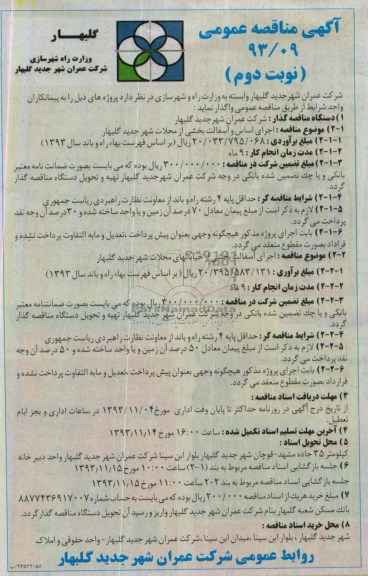 آگهی مناقصه عمومی
۹۳/۰۹
(نوبت دوم)
گلبهار
وزارت راه شهرسازی
شرکت عمران شهر جدید گلبهار
شرکت عمران شهرجدید گلبهار وابسته به وزارت راه و شهرسازی در نظر دارد پروژه های ذیل را به پیمانکاران
واجد شرایط از طریق مناقصه عمومی واگذار نماید
۱) دستگاه مناقصه گذار : شرکت عمران شهر جدید گلبهار
۲-۱) موضوع مناقصه : اجرای اساس و آسفالت بخشی از محلات شهر جدید گلبهار
۲-۱-۱) مبلغ برآوردی : ۲۰/۰۳۳/۷۹۵/۰۶۸ ریال (بر اساس فهرست بهاء راه و باند سال ۱۳۹۳)
۲-۱-۲) مدت زمان انجام کار : ۹ ماه
۲-۱-۳) مبلغ تضمین شرکت در مناقصه : ۳۰۰/۰۰۰/۰۰۰ ریال بوده که می بایست بصورت ضمانت نامه معتبر
بانکی و یا چک تضمین شده بانکی در وجه شرکت عمران شهرجدید گلبهار تهیه و تحویل دستگاه مناقصه گذار
گردد.
۲-۱-۴) شرایط مناقصه گر : حداقل پایه ۴ رشته راه و باند از معاونت نظارت راهبردی ریاست جمهوری
۲-۱-۵) لازم به ذکر است از مبلغ پیمان معادل ۷۰ درصد آن زمین و یا واحد ساخته شده و ۳۰درصد آن وجه نقد
پرداخت می گردد.
۲-۱-۶) بابت اجرای پروژه مذکور هیچگونه وجهی بعنوان پیش پرداخت ،تعدیل و مابه التفاوت پرداخت نشده و
قرارداد بصورت مقطوع منعقد می گردد.
۲-۲) موضوع مناقصه : اجرای آسفالت خیابانهای محلات شهر جدید گلبهار
۲-۲-۱) مبلغ برآوری : ۲۰/۳۹۵/۵۸۳/۱۳۱ ریال (بر اساس فهرست بهاء راه و باند سال ۱۳۹۳)
۲-۲-۲) مدت زمان انجام کار : ۹ ماه
۲-۲-۳) مبلغ تضمین شرکت در مناقصه : ۳۰۰/۰۰۰/۰۰۰ ریال بوده که می بایست بصورت ضمانتنامه معتبر
بانکی و یا چک تضمین شده بانکی در وجه شرکت عمران شهر جدید گلبهار تهیه و تحویل دستگاه مناقصه گذار
گردد.
۲-۲-۴) شرایط مناقصه گر : حداقل پایه ۴ رشته راه و باند از معاونت نظارت راهبردی ریاست جمهوری
۲-۲-۵) لازم به ذکر است از مبلغ پیمان معادل ۵۰ درصد آن زمین و یا واحد ساخته شده و ۵۰ درصد آن وجه
نقد پرداخت می گردد.
۲-۲-۶) بابت اجرای پروژه مذکور هیچگونه وجهی بعنوان پیش پرداخت ،تعدیل و مابه التفاوت پرداخت نشده و
قرارداد بصورت مقطوع منعقد می گردد.
۳) مهلت دریافت اسناد مناقصه :
از تاریخ درج آگهی در روزنامه حداکثر تا پایان وقت اداری مورخ۱۳۹۳/۱۱/۰۴ در ساعات اداری و بجز ایام
تعطیل.
۴) آخرین مهلت تسلیم اسناد تکمیل شده : ساعت ۱۶:۰۰ مورخ ۱۳۹۳/۱۱/۱۴
۵) محل تحویل اسناد :
کیلومتر ۳۵ جاده مشهد-قوچان شهر جدید گلبهار بلوار ابن سینا شرکت عمران شهر جدید گلبهار واحد دبیر خانه
۶) جلسه بازگشایی اسناد مناقصه مربوط به بند (۲-۱) ساعت ۱۰:۰۰ مورخ ۱۳۹۳/۱۱/۱۵
جلسه بازگشایی اسناد مناقصه مربوط به بند ۲-۲ ساعت ۱۱:۰۰ مورخ ۱۳۹۳/۱۱/۱۵
۷) مبلغ خرید هریک از اسناد مناقصه ۲۰۰/۰۰۰ ریال بوده که می بایست به حساب شماره ۸۸۷۷۴۳۶۹۱۷۰۰۷
بانک مسکن شعبه گلبهار بنام شرکت عمران شهر جدید گلبهار واریز و رسید آن تحویل دستگاه مناقصه گذار گردد.
۸) محل خرید اسناد مناقصه :
شهر جدید گلبهار ، بلوار ابن سینا ،میدان ابن سینا ،شرکت عمران شهر جدید گلبهار- واحد حقوقی و املاک
روابط عمومی شرکت عمران شهر جدید گلبهار